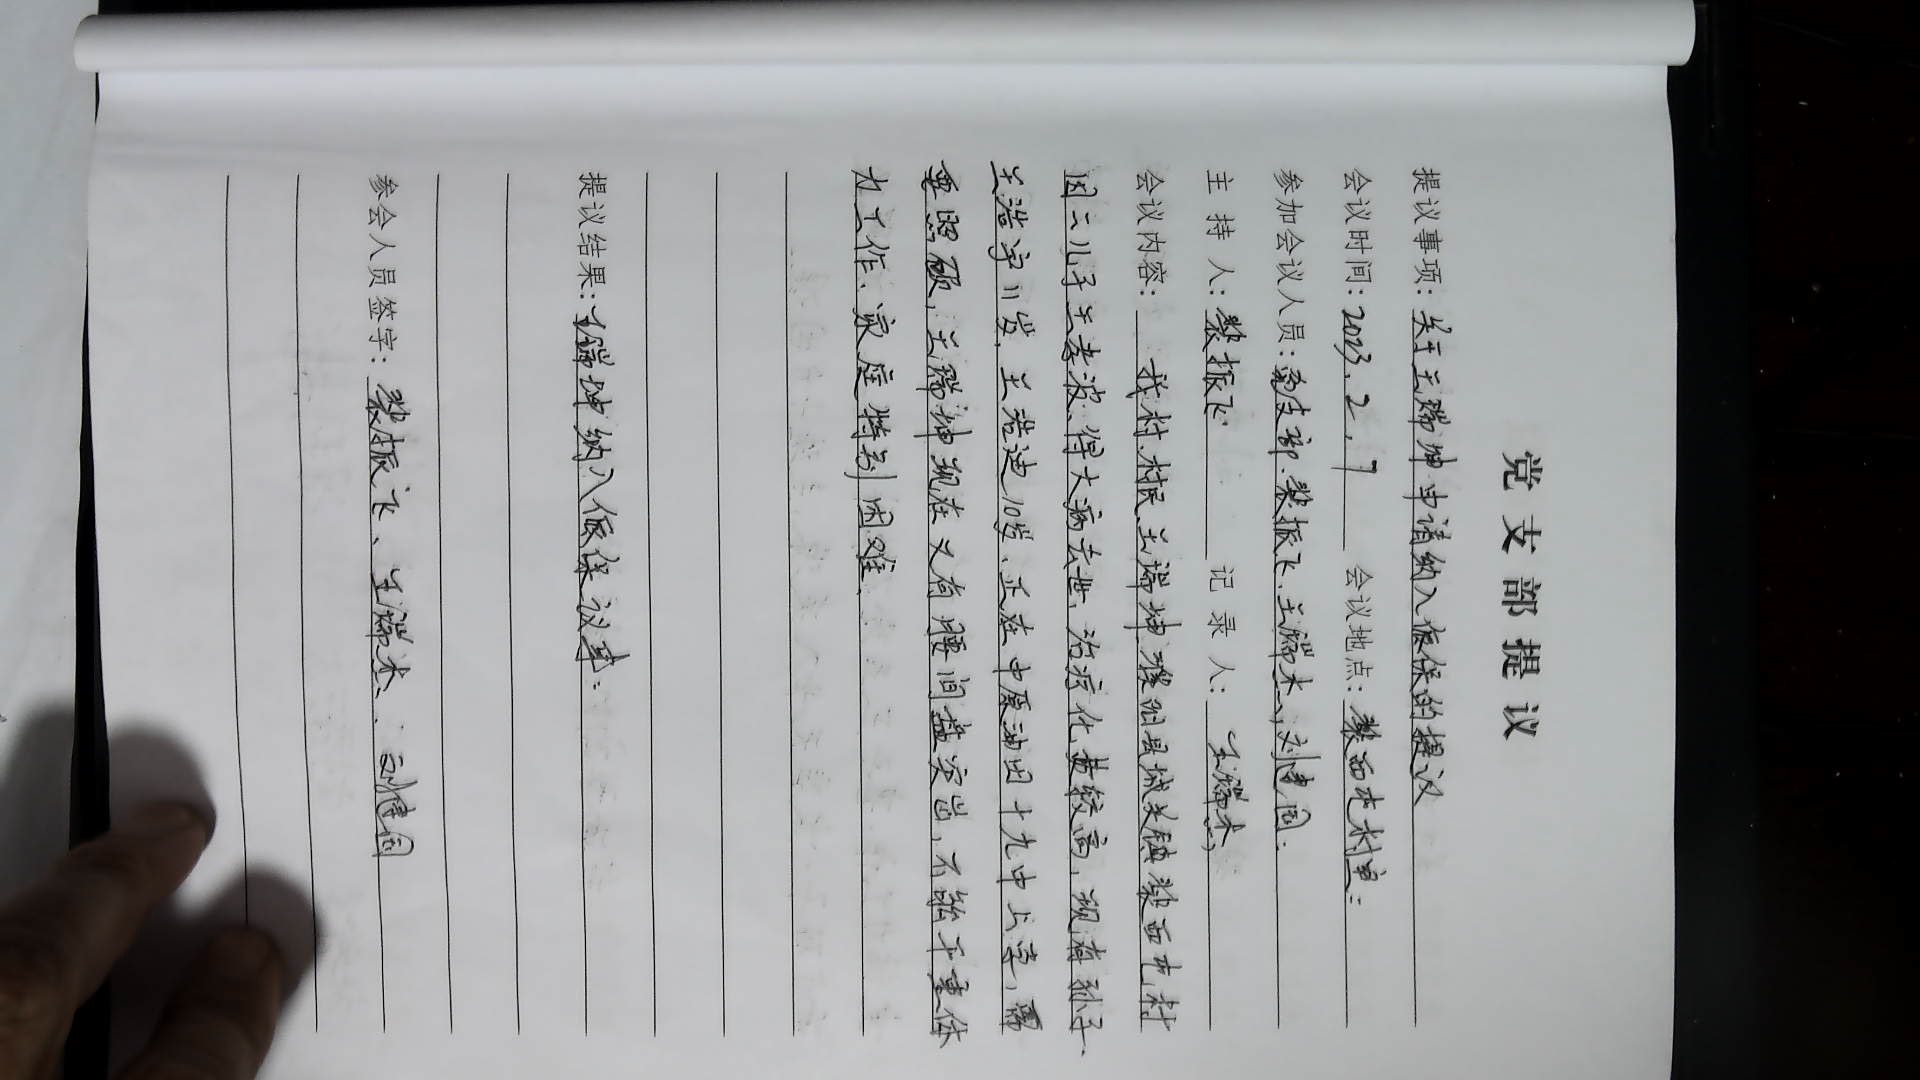 党支部提议
提议事项：关于王瑞坤申请纳入低保的提议
会议时间：2023.2.7 会议地点：黎西屯村室：
参加会议人员：党支部.黎振飞.王瑞杰,刘建国.
主持人：黎振飞 记录人：王瑞杰,
会议内容： 我村村民王瑞坤濮阳县城关镇黎西屯村
因二儿子王孝波.得大病去世、治疗化费较高,现有孙子.
王浩宇11岁.王浩迪10岁、正在中原油田十九中上学,需
要照顾,王瑞坤现在又有腰间盘突出,不能干重体
力工作、家庭特别困难.
提议结果：王瑞坤纳入低保议事：
参会人员签字：黎振飞、王瑞杰、刘建国